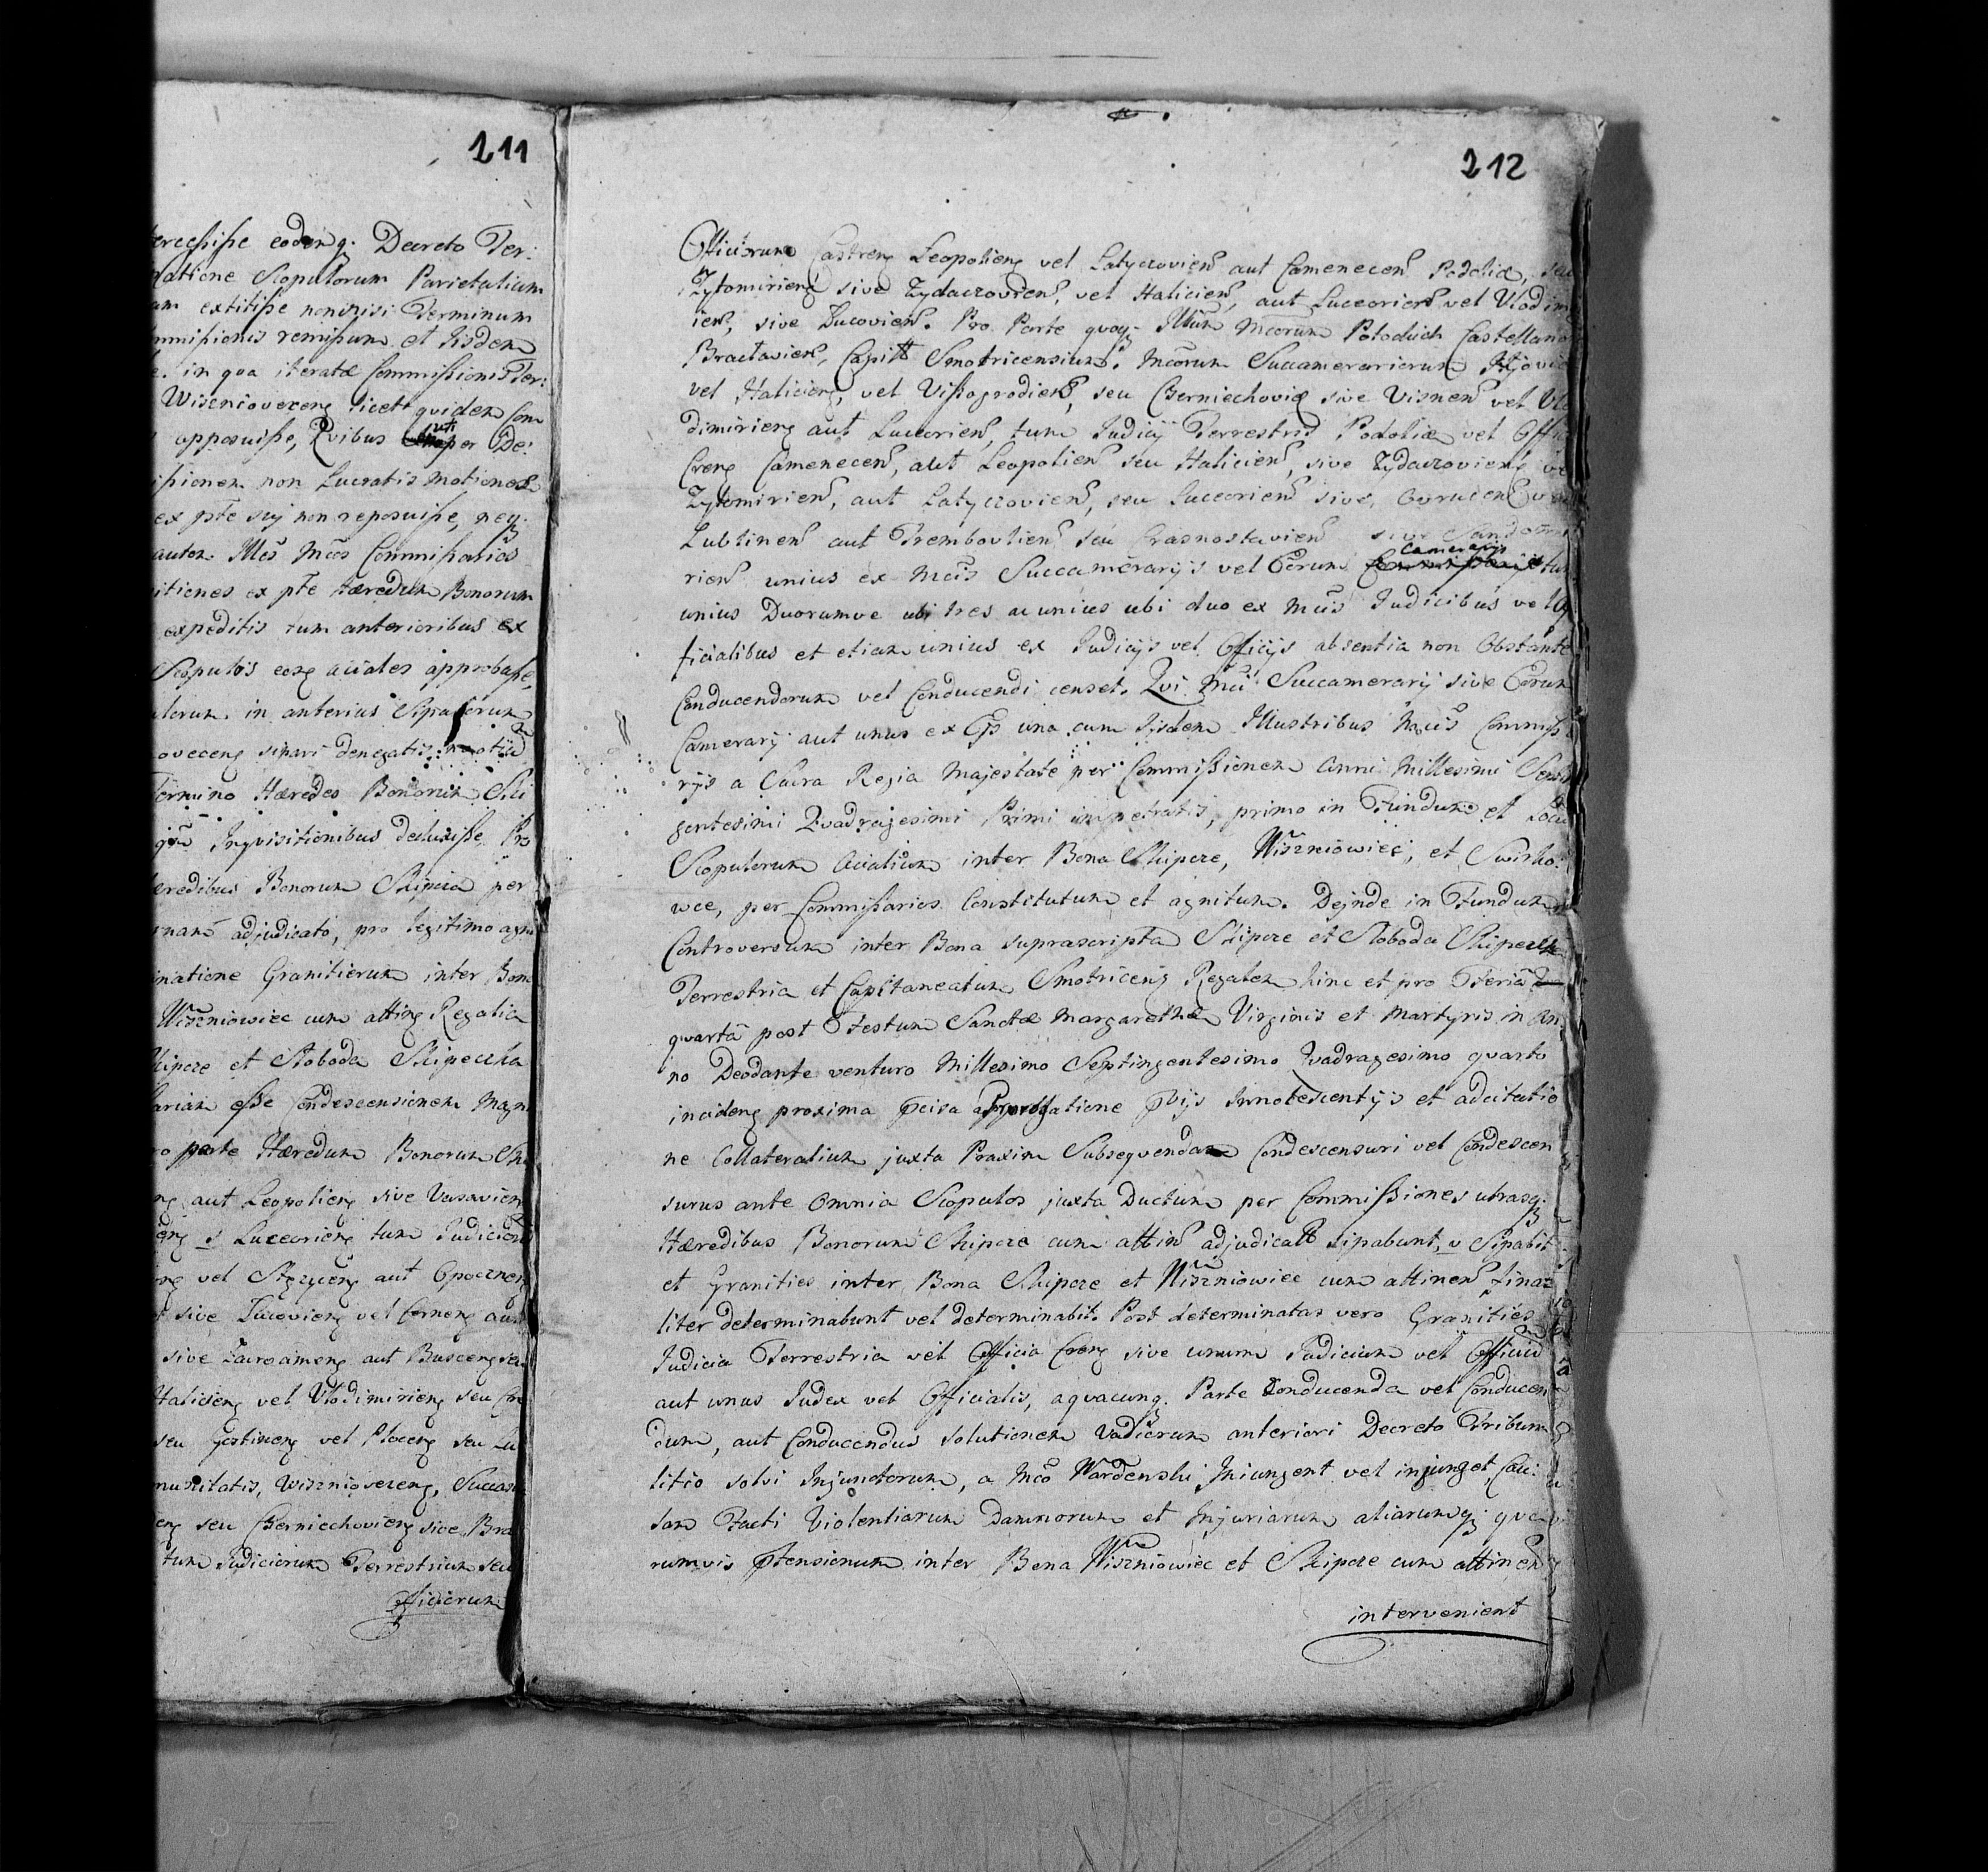 211
ercessisse eodemq. Decreto Ter:
natione Scopulorum Parietalium
um extitisse non nisi Terminum
mmissionis remissum et Iisdem
e. in qua iteratæ Commissionis Ter:
Wiszniovecens licet quidem Com
opposuisse, Qvibus uti per De:
issionem non Lucratis Motiones
ex pte suj non reposuisse, neq.
autem Illes Mcos Commissarios
itiones ex pte Hæredum Bonorum
expeditis tum anterioribus ex
Scopulos eosq aciales approbasse,
ulorum in anterius Signatorum
ovecens sipari denegatis
Termino Hæredes Bonorum Ski
Inqvisitionibus deduxisse Pro
eredibus Bonorum Skipcza per
adjudicato, pro legitimo agni
inatione Granitierum inter Bona
Wiszniowiec cum atting Regalia
kipcze et Sloboda Skipeczka
ariam esse Condescensionem Magni
ro parte Hæredum Bonorum Ski
aut Leopoliens sive Varsavien
Luceoriens tum Judiciorum
vel aut Opocznens
sive Lucoviens vel Cornens aut
sive aut Buscens seu
Haliciens vel Vlodimiriens seu
seu Gostinens vel Plocens seu Lu
Wiszniovecens, Succa
seu Czerniechoviens sive Bra
tum Judiciorum Terrestrium seu
fficiorum
212
Officiorum Castrens Leopoliens vel Latyczovien aut Camenecen Podoliæ, seu
Zytomiriens sive Zydaczovien, vel Halicien, aut Luceorien vel Vlodimi
ien, sive Lucovien. Pro Parte quoq. Illum Mcorum Potockich Castellano
Braclavien, Capitt Smotricensium. Mcorum Succamerariorum Kijovie
vel Haliciens, vel Vissogrodien, seu Czerniechoviæ sive Visnen vel Vlo
dimiriens aut Luceorien, tum Judicij Terrestris Podoliæ vel Offic
Crens Camenecen, aut Leopolien seu Halicien, sive Zydaczoviens ve
Zytomirien, aut Latyczovien, seu Luceorien sive, Ovrucen vel
Lublinen aut Trembovlien seu Crasnostavien sive Sandomi
rien unius ex Mcis Succamerarijs vel Eorum Camerarijs tum
unius Duorumve ubi tres ac unius ubi duo ex Mcis Judicibus vel Of
ficialibus et etiam unius ex Judicijs vel Officijs absentia non Obstante
Conducendorum vel Conducendi censet. Qvi Mci Succamerarij sive Eorum
Camerarij aut unus ex Eis una cum Iisdem Illustribus Mcis Commissa
rijs a Sacra Regia Majestate per Commissionem Anni Millesimi Septin
gentesimi Qvadragesimi Primi impetratis, primo in Fundum et Locu
Scopulorum Acialium inter Bona Skipcze, Wiszniowiec, et Swirko:
wce, per Commissarios Constitutum et agnitum. Dejnde in Fundum
Controversum inter Bona suprascripta Skipcze et Sloboda Skipeczka
Terrestria et Capitaneatum Smotricens Regalem hinc et pro Feria
quartâ post Festum Sanctæ Margarethæ Virginis et Martyris in An
no Deodante venturo Millesimo Septingentesimo Qvadragesimo quarto
incidens proxima pcisa Prorogatione pvijs Innotescentijs et adcitatio
ne Collateralium juxta Praxim Subsequendam Condescensuri vel Condescen
surus ante Omnia Scopulos juxta Ductum per Commissiones utrasq.
Hæredibus Bonorum Skipcze cum attin adjudicatt sipabunt, v Sipabit
et Granities inter Bona Skipcze et Wiszniowiec cum attinen fina:
liter determinabunt vel determinabit. Post determinatas vero Granities
Judicia Terrestria vel Officia Crens sive unum Judicium vel Officiu
aut unus Judex vel Officialis, aqvacunq. Parte Conducenda vel Conducen
dum, aut Conducendus solutionem Vadiorum anteriori Decreto Tribuna
litio solvi Injunctorum, a Mco Wardenski Iniungent vel injunget Cau:
sam Facti Violentiarum Damnorum et Injuriarum aliarumq; quo
rumvis ptensionum inter Bona Wiszniowiec et Skipcze cum attinen
intervenient